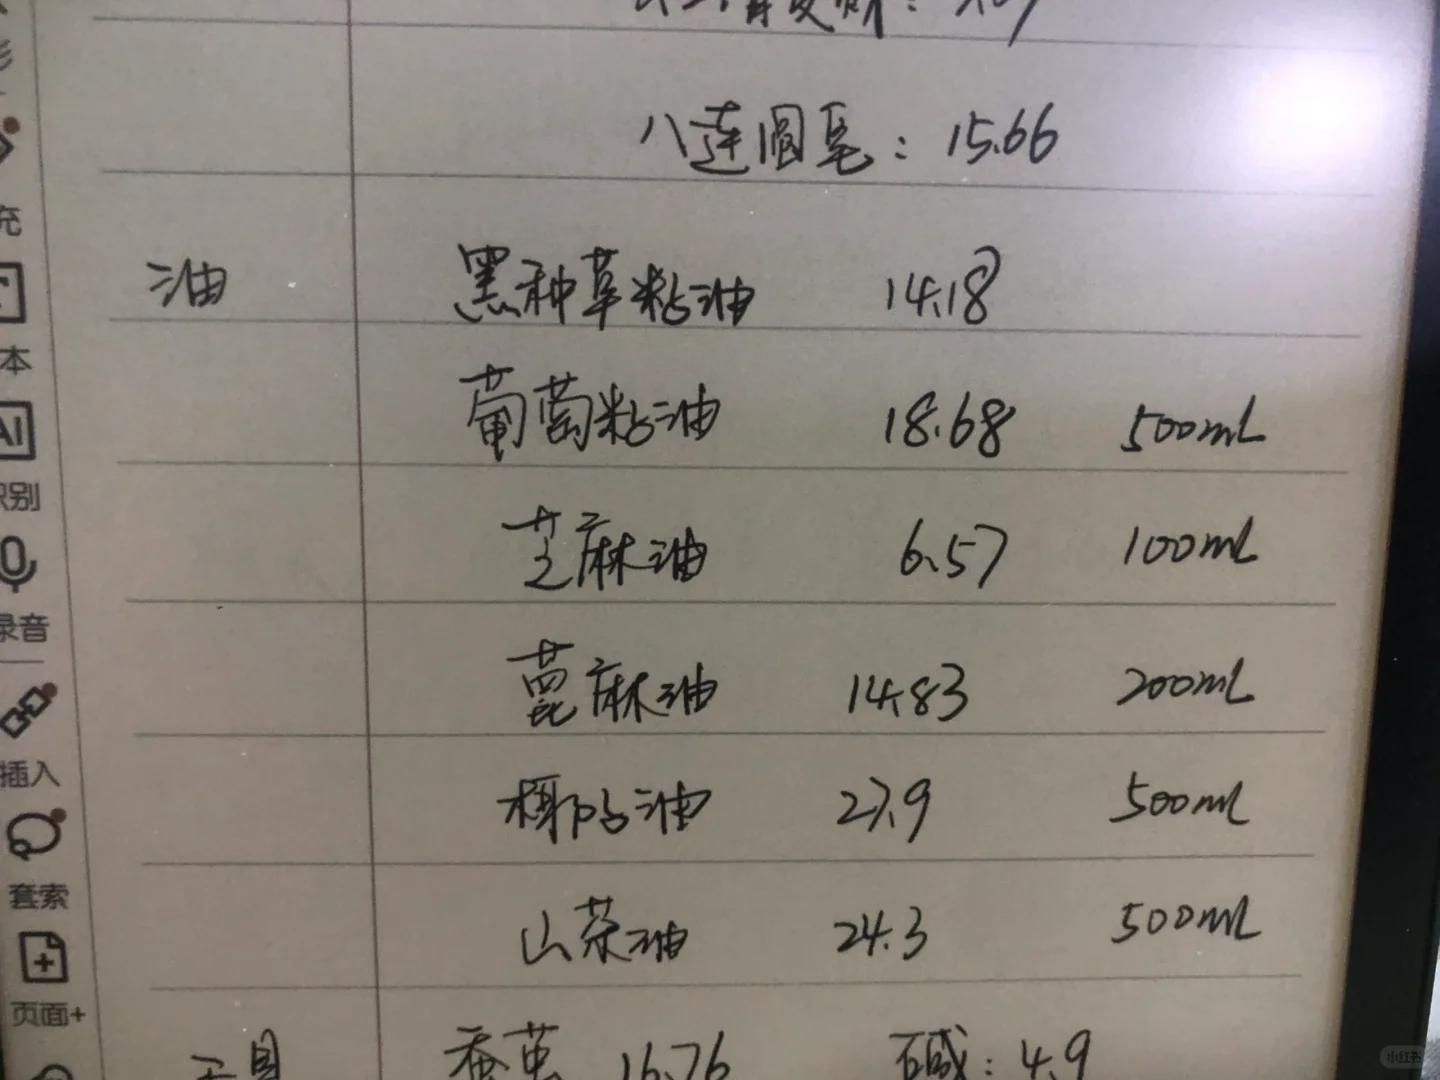 八连圆皂：15.66
充
油 黑种草籽油 14.18
本
葡萄籽油 18.68 500mL
AI
识别
芝麻油 6.57 100mL
录音
蓖麻油 14.83 200mL
插入
椰子油 27.9 500mL
套索
山茶油 24.3 500mL
页面+
工具 蚕茧 16.76 碱：4.9
小红书